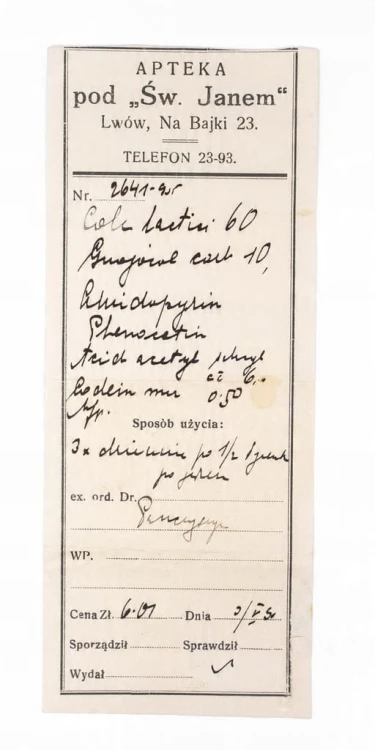 APTEKA
pod „Św. Janem“
Lwów, Na Bajki 23.
TELEFON 23-93.
Nr. 2641
Calc lactici 60
Guajacol carb 10,
Amidopyrin
Phenacetin
Acid acetyl salicyl
āā 6,0
Codein mur 0.50
Sposòb użycia:
3 x dziennie po 1/2
po jedzen
ex. ord. Dr.
WP.
Cena Zł. 6.01 Dnia
Sporządził Sprawdził
Wydał